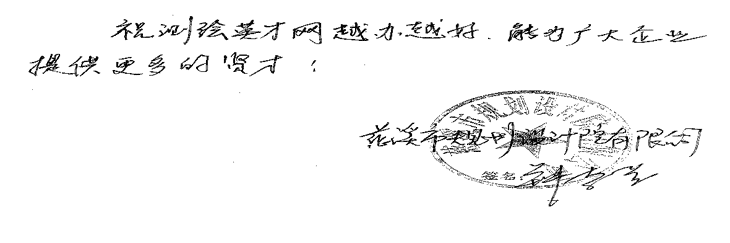 祝测绘英才网越办越好，能为广大企业
提供更多的贤才！
慈溪市规划设计院有限公司
市规划设计院
签名：